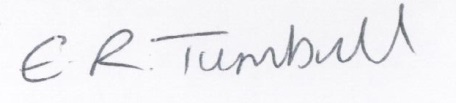 E. R. Turnbull